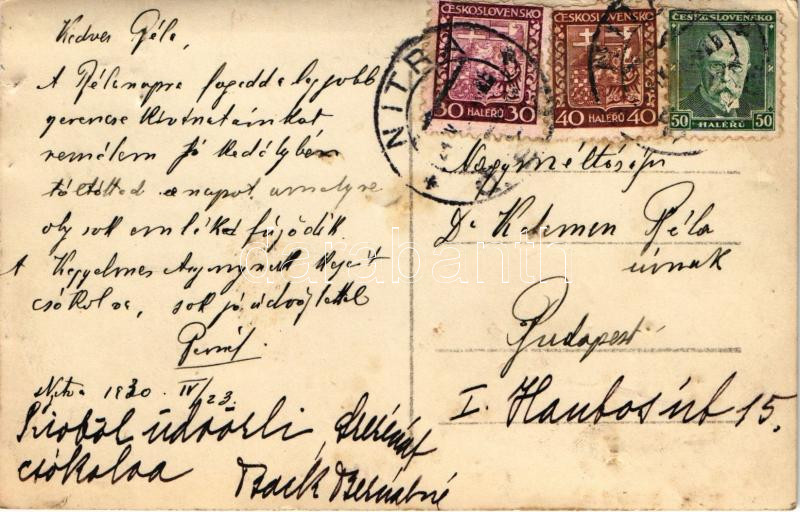 Kedves Béla,
A Bélanapra fogadd a legjobb
szerencse kívánatainkat
remélem jó kedélyben
töltötted a napot amelyre
oly sok emléked fűződik
A Kegyelmes Asszonynak kezeit
csókolva, sok jó üdvözlettel
Nitra 1930. IV/23.
Szívből üdvözli,
csókolva Back Bernátné
ČESKOSLOVENSKO
30 HALÉŘŮ 30
ČESKOSLOVENSKO
40 HALÉŘŮ 40
ČESKOSLOVENSKO
50 HALÉŘŮ 50
NITRA
Nagyméltóságu
Dr Kelemen Béla
úrnak
Budapest
I. Hauboś út 15.
darabanth